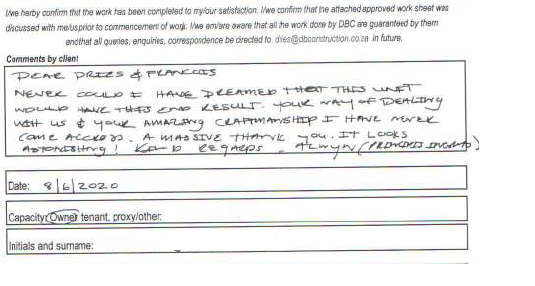 I/we herby confirm that the work has been completed to my/our satisfaction. I/we confirm that the attached approved work sheet was
discussed with me/us prior to commencement of work. I/we am/are aware that all the work done by DBC are guaranteed by them
and that all queries, enquiries, correspondence be directed to dries@dbconstruction.co.za in future.
Comments by client
DEAR DRIES & FRANCOIS
NEVER COULD I HAVE DREAMED THAT THIS UNIT
WOULD HAVE THIS END RESULT. YOUR WAY OF DEALING
WITH US & YOUR AMAZING CRAFTMANSHIP I HAVE NEVER
COME ACCROSS. A MASSIVE THANK YOU. IT LOOKS
ASTONISHING! KIND REGARDS - ALWYN
Date: 8/6/2020
Capacity: Owner tenant, proxy/other:
Initials and surname: